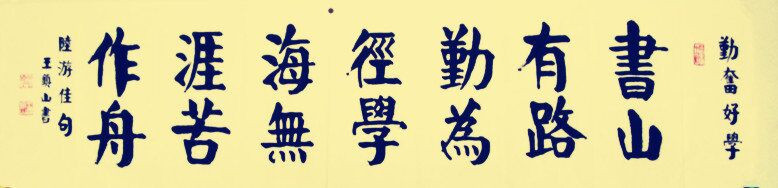 勤奮好學
書山
有路
勤為
徑學
海無
涯苦
作舟
陸游佳句